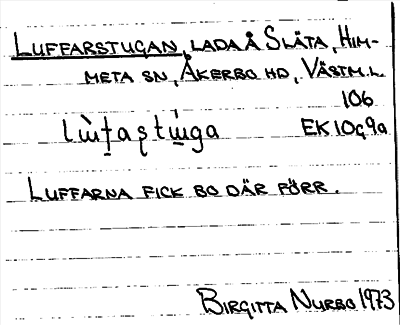 LUFFARSTUGAN, LADA Å SLÄTA, HIM-
META SN, ÅKERBO HD, VÄSTM.L.
106
EK10G9a
LUFFARNA FICK BO DÄR FÖRR.
BIRGITTA NURBO 1973